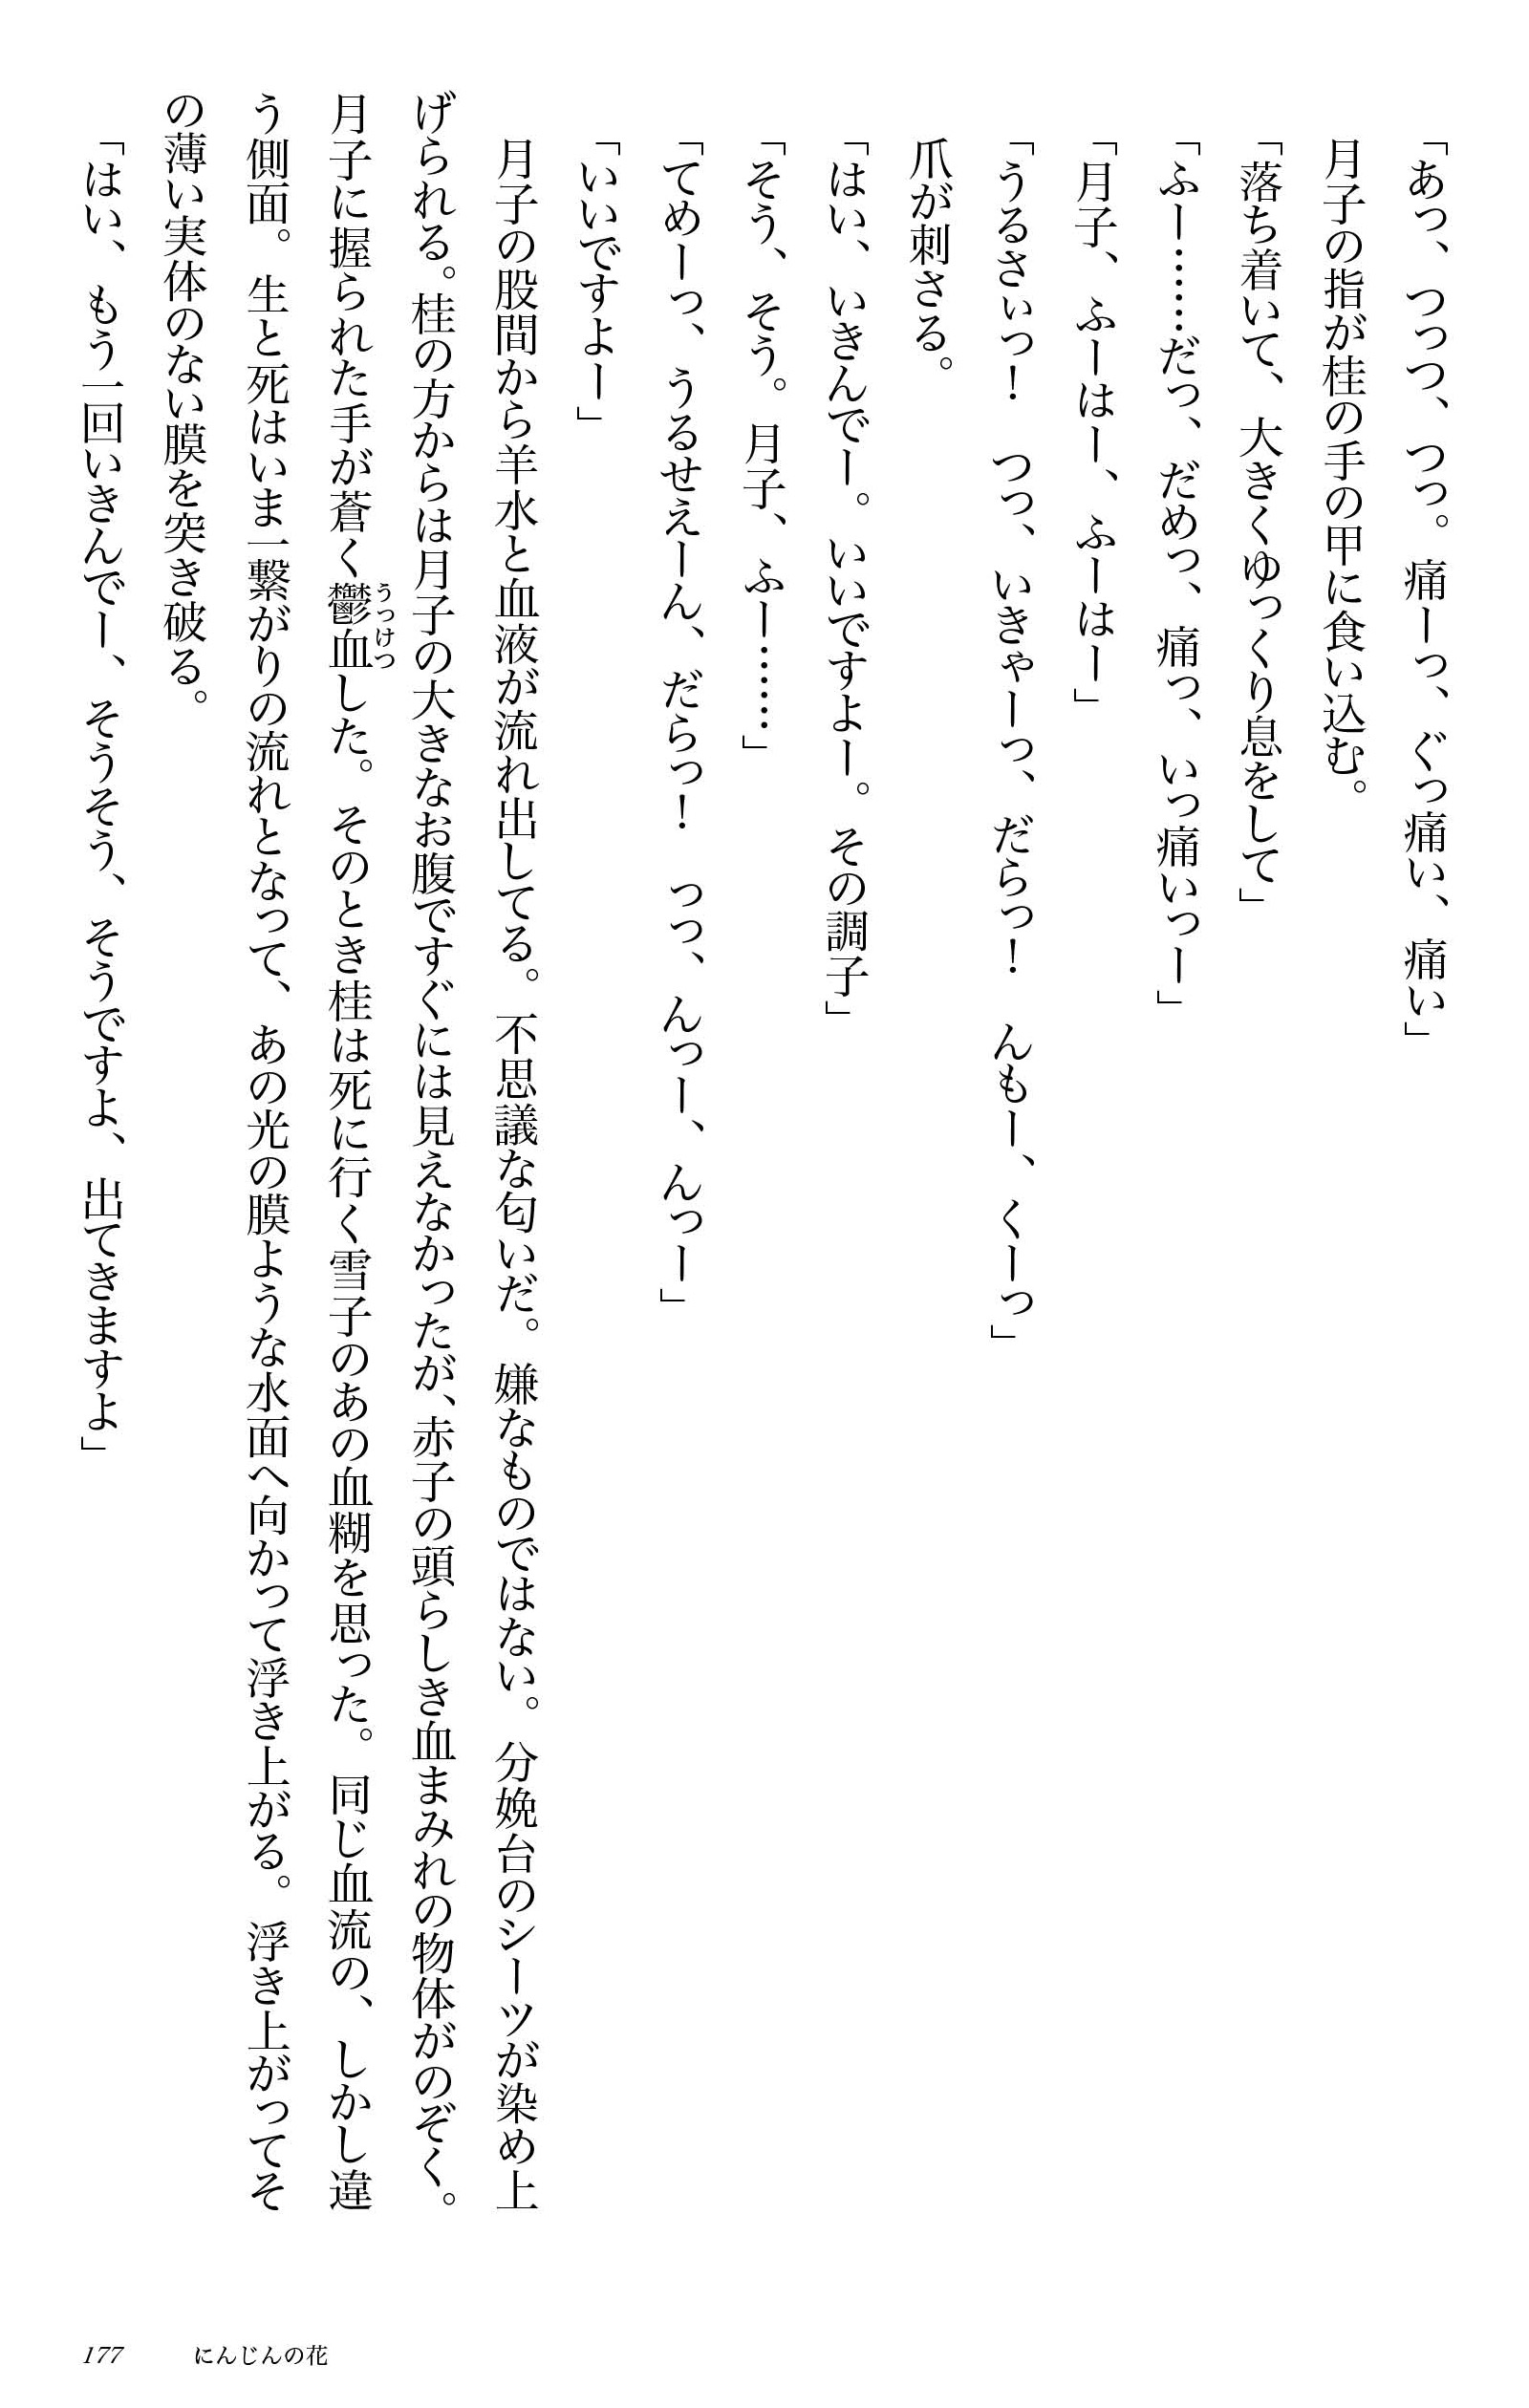 「あっ、つっつ、つっ。痛ーっ、ぐっ痛い、痛い」
月子の指が桂の手の甲に食い込む。
「落ち着いて、大きくゆっくり息をして」
「ふー……だっ、だめっ、痛っ、いっ痛いっー」
「月子、ふーはー、ふーはー」
「うるさぃっ！　つっ、いきゃーっ、だらっ！　んもー、くーっ」
爪が刺さる。
「はい、いきんでー。いいですよー。その調子」
「そう、そう。月子、ふー……」
「てめーっ、うるせえーん、だらっ！　っっ、んっー、んっー」
「いいですよー」
月子の股間から羊水と血液が流れ出してる。不思議な匂いだ。嫌なものではない。分娩台のシーツが染め上
げられる。桂の方からは月子の大きなお腹ですぐには見えなかったが、赤子の頭らしき血まみれの物体がのぞく。
月子に握られた手が蒼く鬱血うっけつした。そのとき桂は死に行く雪子のあの血糊を思った。同じ血流の、しかし違
う側面。生と死はいま一繋がりの流れとなって、あの光の膜ような水面へ向かって浮き上がる。浮き上がってそ
の薄い実体のない膜を突き破る。
「はい、もう一回いきんでー、そうそう、そうですよ、出てきますよ」
177　にんじんの花